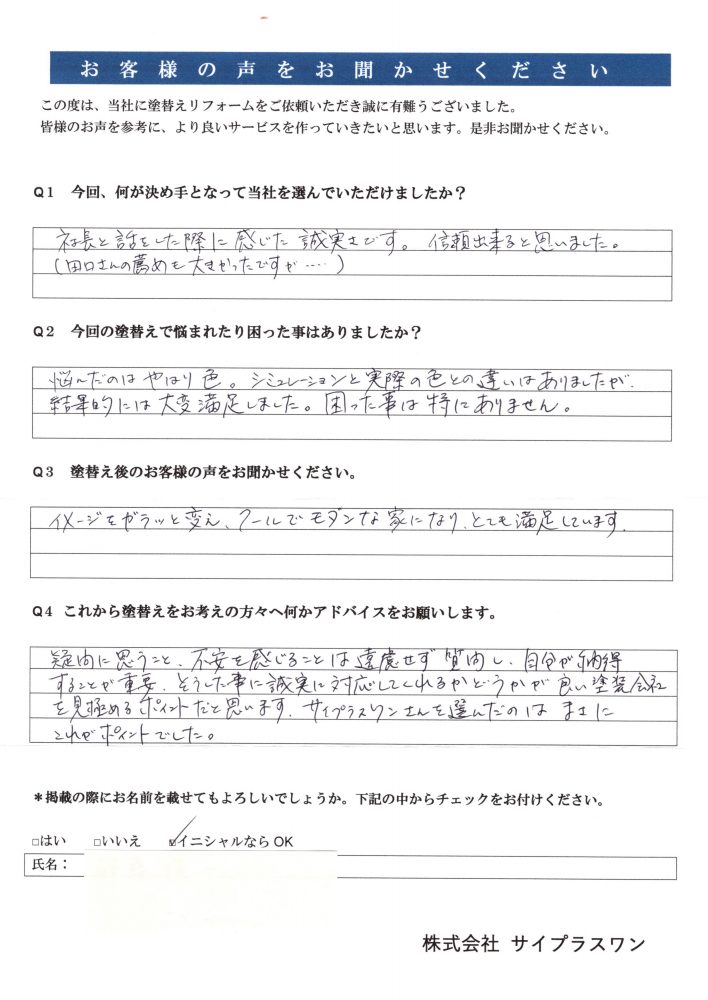 お客様の声をお聞かせください
この度は、当社に塗替えリフォームをご依頼いただき誠に有難うございました。
皆様のお声を参考に、より良いサービスを作っていきたいと思います。是非お聞かせください。
Q1 今回、何が決め手となって当社を選んでいただけましたか？
社長と話をした際に感じた誠実さです。信頼出来ると思いました。
(田口さんの薦めも大きかったですが……)
Q2 今回の塗替えで悩まれたり困った事はありましたか？
悩んだのはやはり色。シミュレーションと実際の色との違いはありましたが、
結果的には大変満足しました。困った事は特にありません。
Q3 塗替え後のお客様の声をお聞かせください。
イメージをガラッと変え、クールでモダンな家になり、とても満足しています。
Q4 これから塗替えをお考えの方々へ何かアドバイスをお願いします。
疑問に思うこと、不安を感じることは遠慮せず質問し、自分が納得
することが重要、そうした事に誠実に対応してくれるかどうかが良い塗装会社
を見極めるポイントだと思います、サイプラスワンさんを選んだのはまさに
これがポイントでした。
＊掲載の際にお名前を載せてもよろしいでしょうか。下記の中からチェックをお付けください。
□はい □いいえ ☑イニシャルなら OK
氏名：
株式会社 サイプラスワン